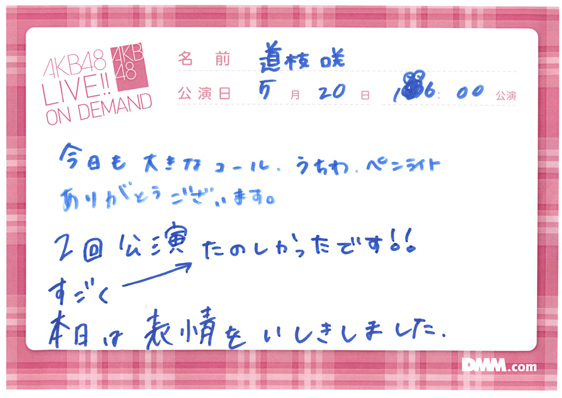 AKB48
LIVE!!
ON DEMAND
AKB
48
名前 道枝咲
公演日 5月20日 16:00 公演
今日も大きなコール、うちわ、ペンライト
ありがとうございます。
2回公演たのしかったです!!
すごく
本日は表情をいしきしました.
DMM.com